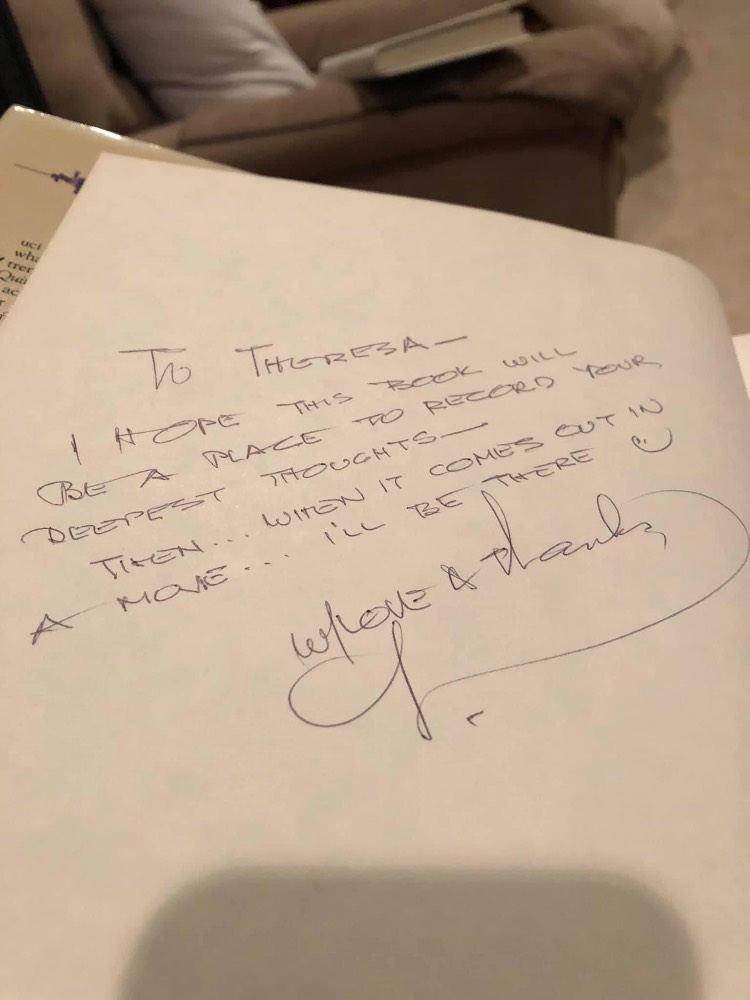 uci
To THERESA—
I HOPE THIS BOOK WILL
BE A PLACE TO RECORD YOUR
DEEPEST THOUGHTS—
THEN... WHEN IT COMES OUT IN
A MOVIE... I'LL BE THERE
w/LOVE & thanks,